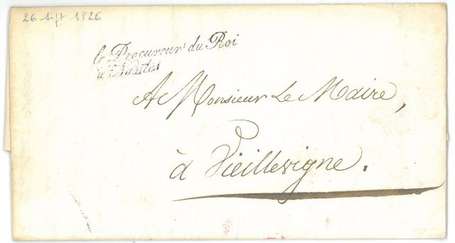 26 Sept 1826
le Procureur du Roi
à Nantes
A Monsieur Le Maire,
à Vieillevigne.